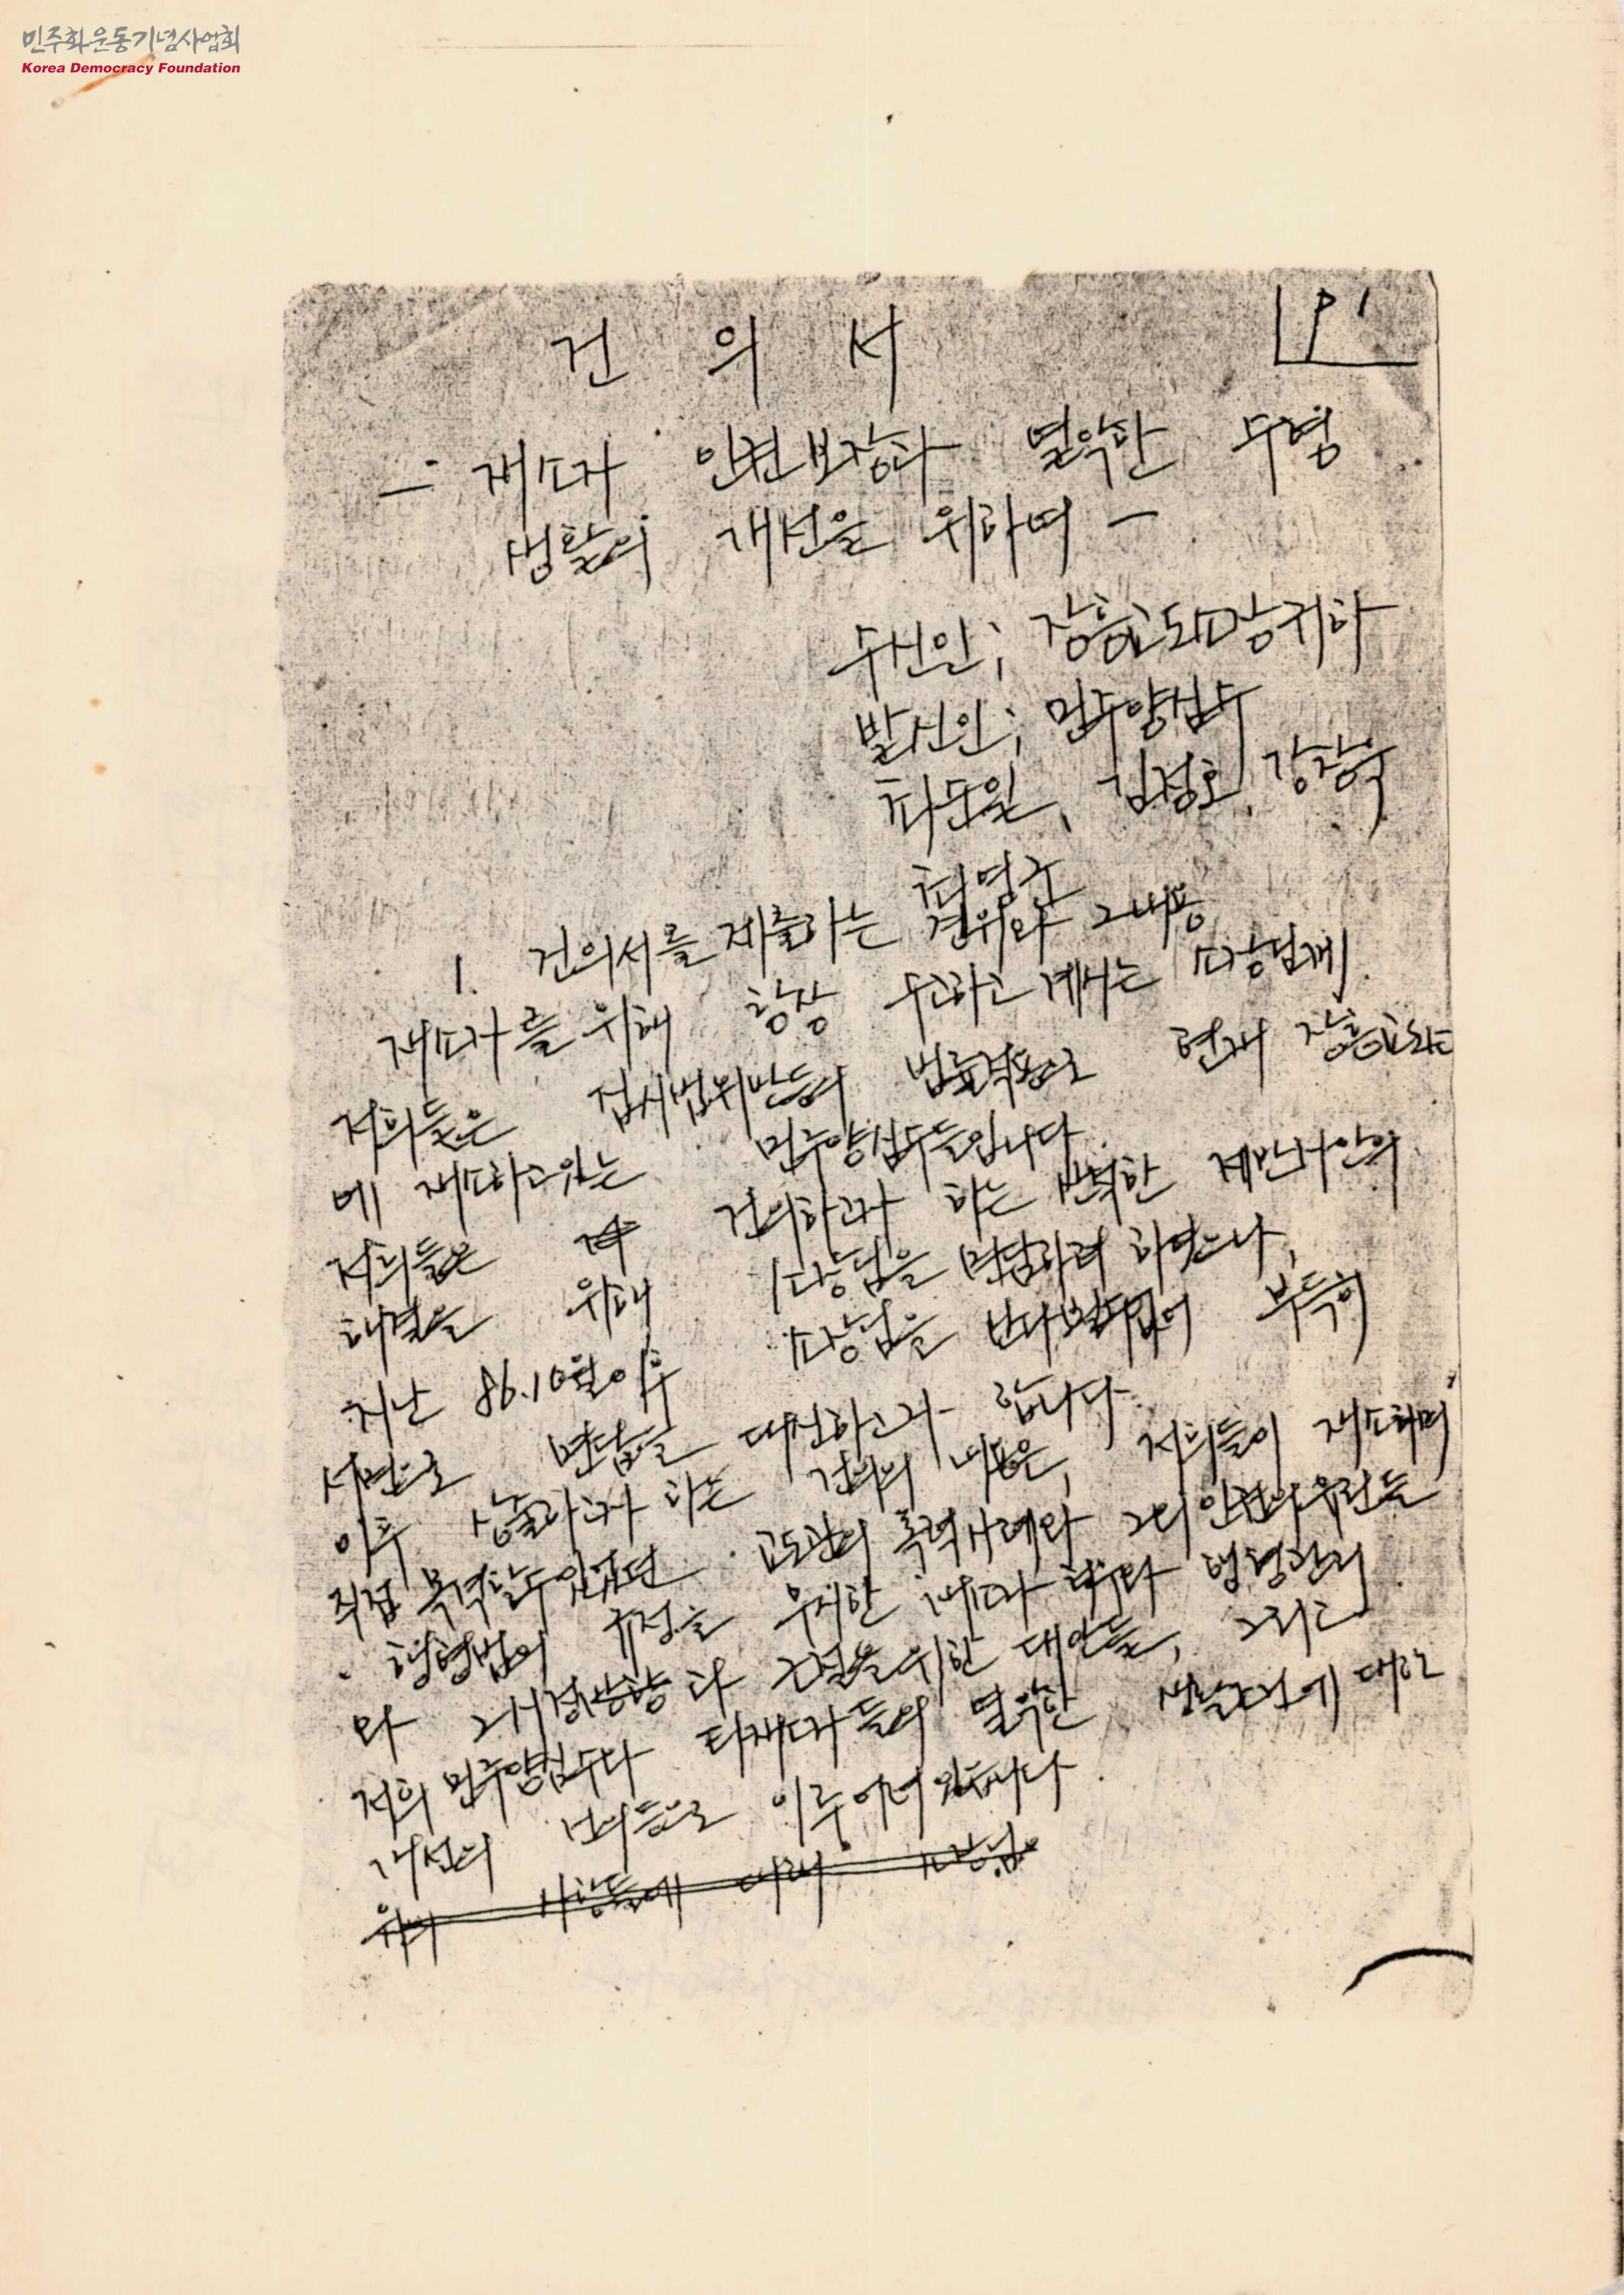 민주화운동기념사업회
Korea Democracy Foundation
P 1
건 의 서
- 재소자 인권보장과 열악한 수형
생활의 개선을 위하여 -
수신인; 장흥교도소장귀하
발신인; 민주양심수
차도일, 김정호, 강장욱
최영근
1. 건의서를 제출하는 경위와 그내용
재소자를 위해 항상 수고하고 계시는 소장님께.
저희들은 집시법위반등의 법률적용으로 현재 장흥교도소
에 재소하고있는 민주양심수들입니다.
저희들은 건의하고자 하는 제반사안의
해결을 위해 소장님을 면담하려 하였으나,
지난 86.10월이후 소장님을 만나 부득히
서면으로 면담을 대신하고자 합니다.
이후 상술하고자 하는 건의의 내용은, 저희들이 재소하며
직접 목격할수있었던 교도관의 폭력사례와 그외 인권의유린들
행형법의 규정을 무시한 행형관리
와 그시정방향과 근절을위한 대안들, 그리고
저희 민주양심수와 타재소자들의 열악한 생활조건에 대한
개선의 내용등으로 이루어져있습니다.
위의 사항들에 대해 소장님